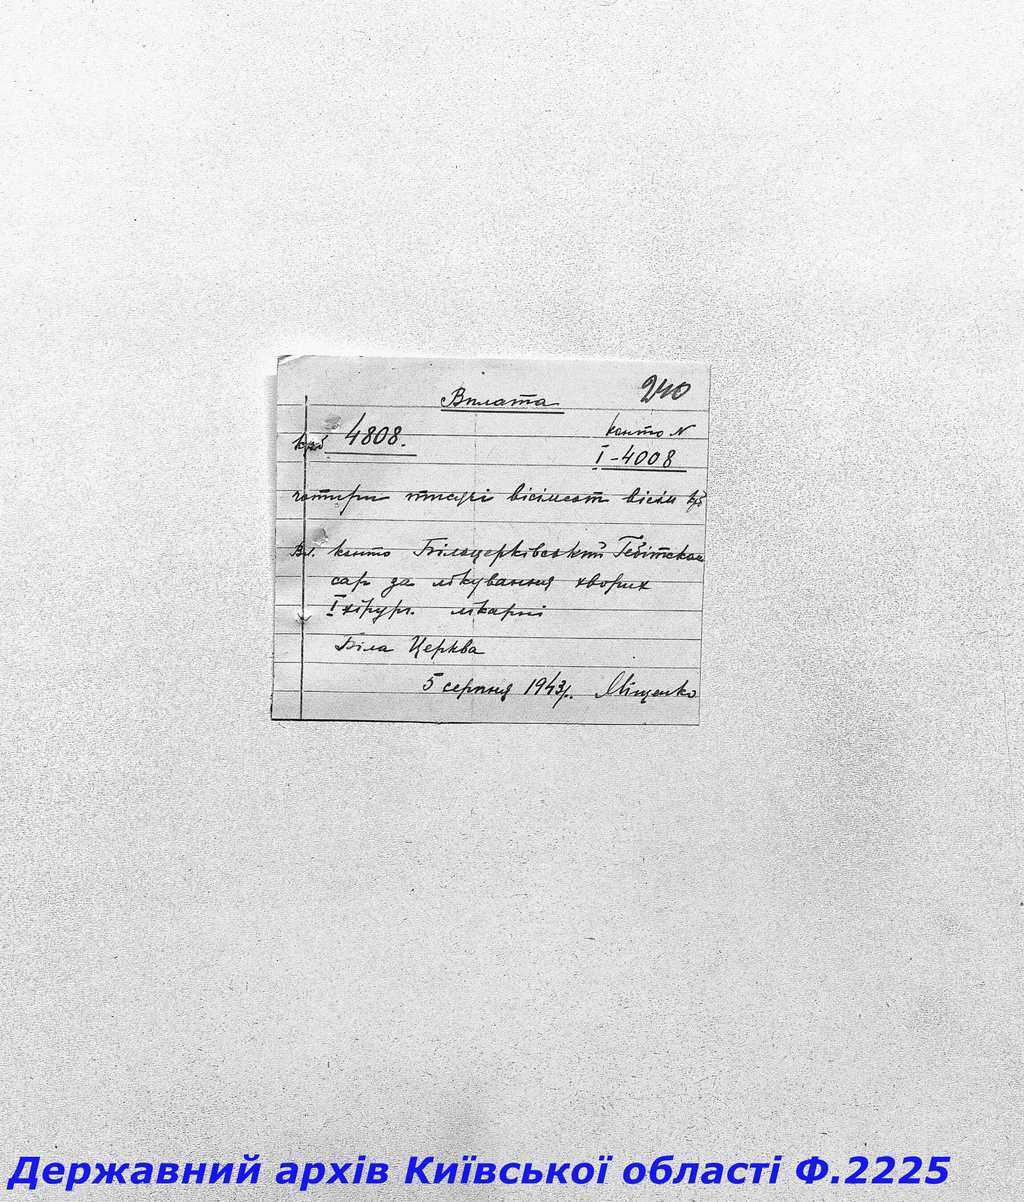 240
Вплата
крб 4808.
конто N
I-4008
чотири тисячі вісімсот вісім крб
Вл. конто Білоцерківський Гебітскомі
сар за лікування хворих
I хірург. лікарні
Біла Церква
5 серпня 1943р. Міщенко
Державний архів Київської області Ф.2225